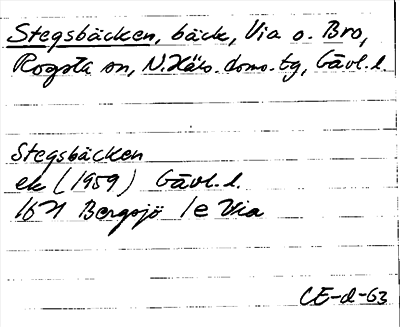 Stegsbäcken, bäck, Via o. Bro,
Rogsta sn, N. Häls. doms. tg, Gävl. l.
Stegsbäcken
ek (1959) Gävl. l.
16H Bergsjö 1e Via
CE-d-63